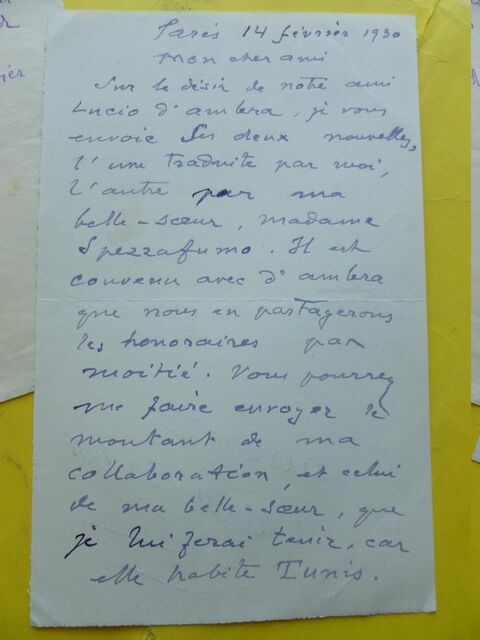 Paris 14 février 1930
Mon cher ami
Sur le désir de notre ami
Lucio d'ambra, je vous
envoie ses deux nouvelles,
l'une traduite par moi,
l'autre par ma
belle-sœur, madame
Spezzafumo. Il est
convenu avec d'ambra
que nous en partagerons
les honoraires par
moitié. Vous pourrez
me faire envoyer le
montant de ma
collaboration, et celui
de ma belle-sœur, que
je lui ferai tenir, car
elle habite Tunis.